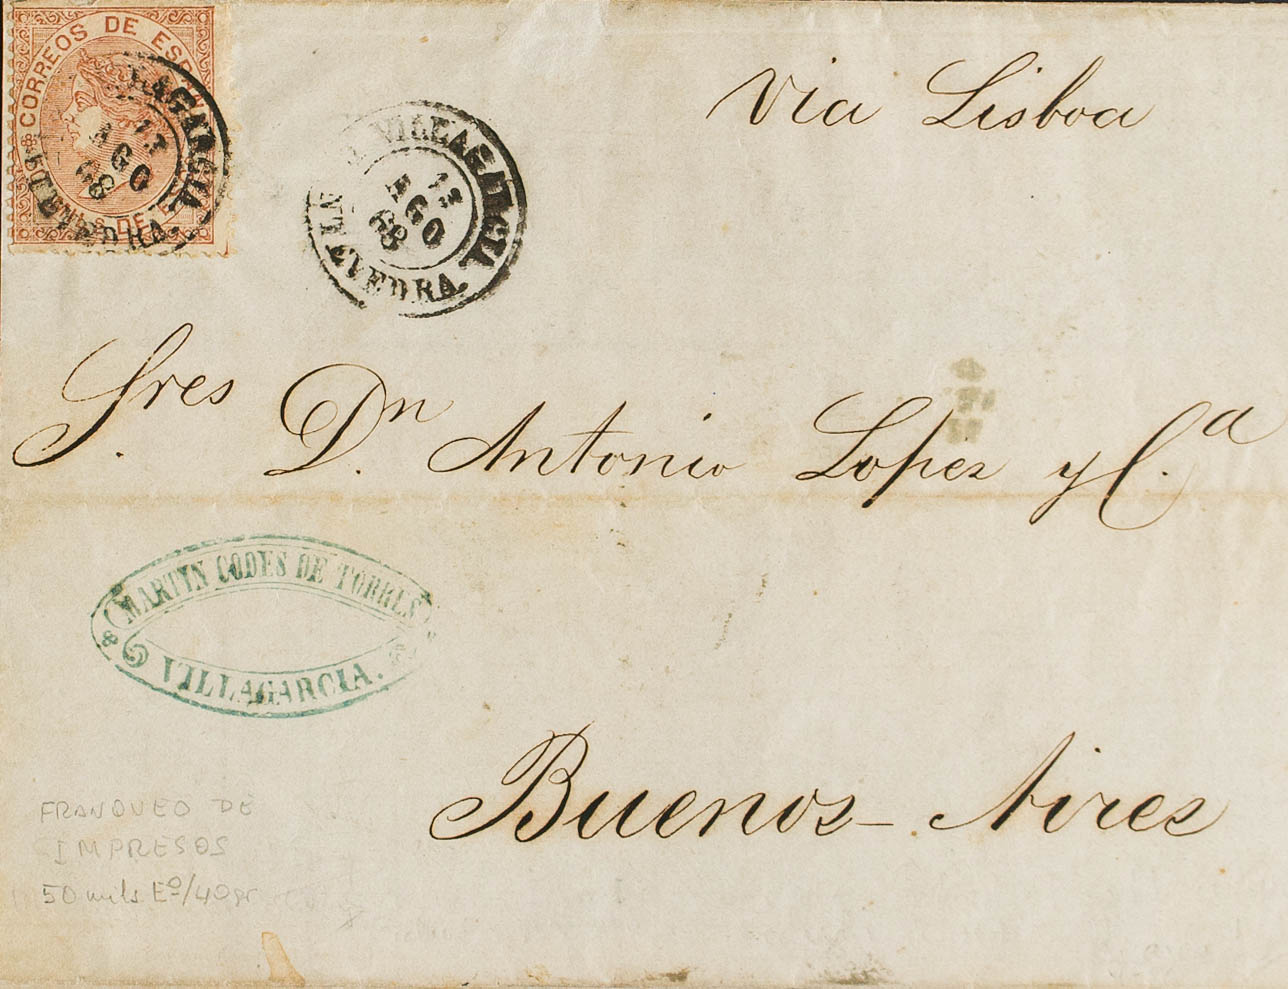 CORREOS DE ESP
Via Lisboa
VILLAGARCIA
13
AGO
68
PONTEVEDRA.
VILLAGARCIA
13
AGO
68
PONTEVEDRA.
Sres Dn Antonio Lopez y Ca
MARTYN CODES DE TORRES
VILLAGARCIA.
Buenos-Aires
FRANQUEO DE
IMPRESOS
50 mils Eº/40gr